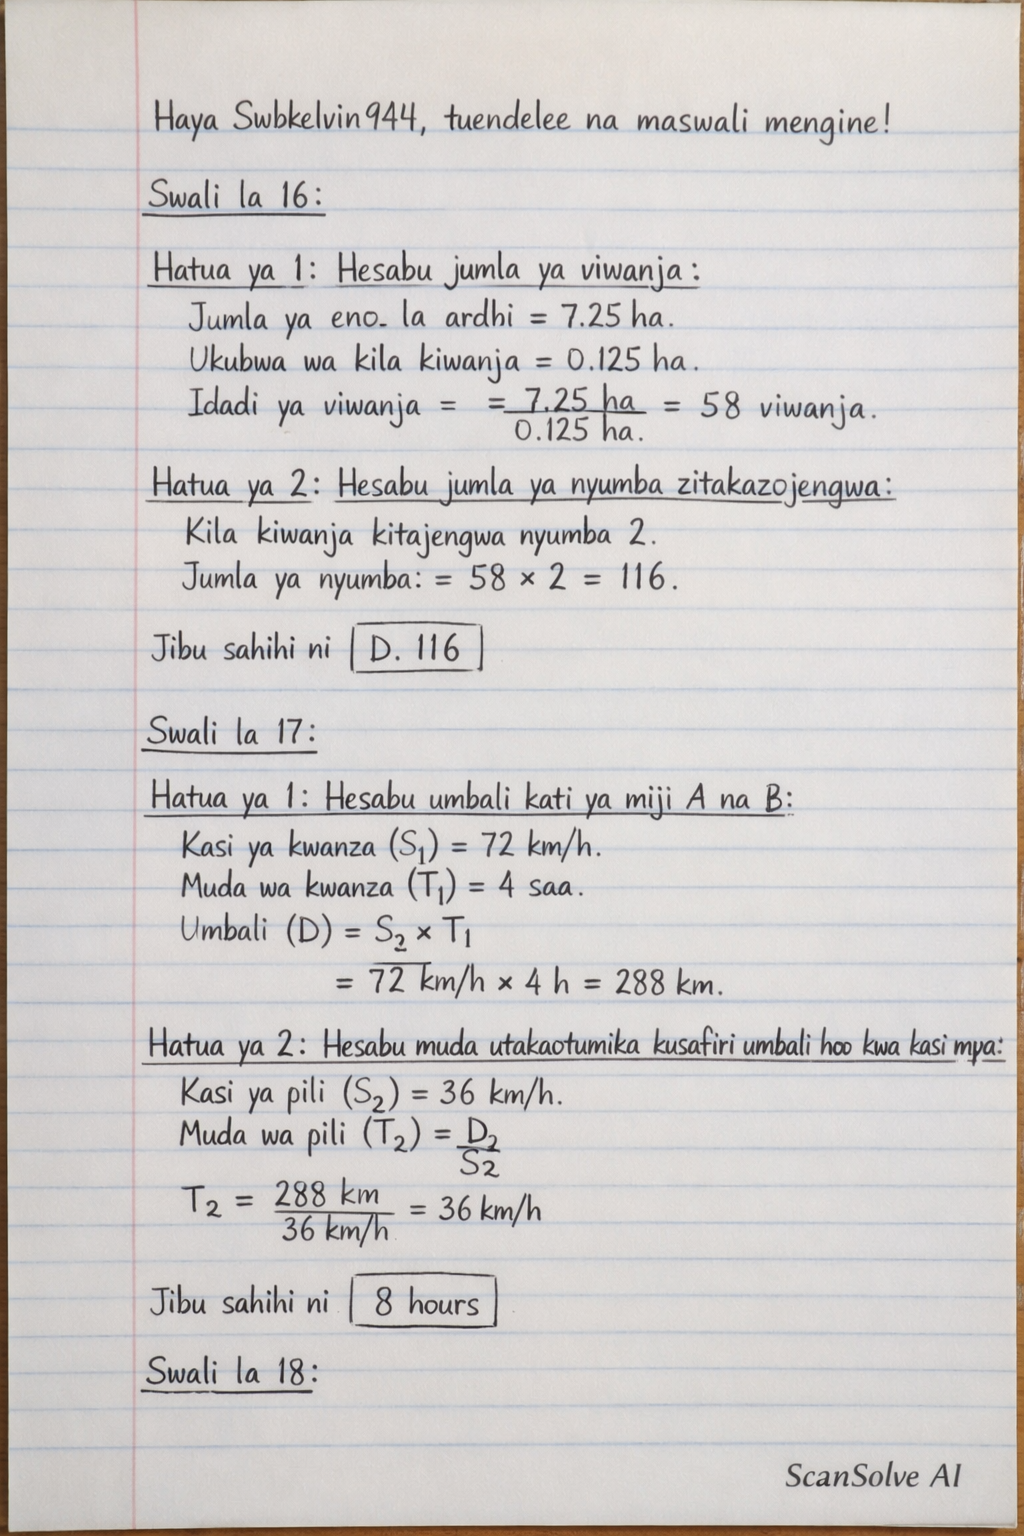 Haya Swbkelvin944, tuendelee na maswali mengine!
Swali la 16:
Hatua ya 1: Hesabu jumla ya viwanja:
Jumla ya eno. la ardhi = 7.25 ha.
Ukubwa wa kila kiwanja = 0.125 ha.
Idadi ya viwanja = = 7.25 ha / 0.125 ha. = 58 viwanja.
Hatua ya 2: Hesabu jumla ya nyumba zitakazojengwa:
Kila kiwanja kitajengwa nyumba 2.
Jumla ya nyumba: = 58 × 2 = 116.
Jibu sahihi ni D. 116
Swali la 17:
Hatua ya 1: Hesabu umbali kati ya miji A na B:
Kasi ya kwanza (S₁) = 72 km/h.
Muda wa kwanza (T₁) = 4 saa.
Umbali (D) = S₂ × T₁
= 72 km/h × 4 h = 288 km.
Hatua ya 2: Hesabu muda utakaotumika kusafiri umbali hoo kwa kasi mpa:
Kasi ya pili (S₂) = 36 km/h.
Muda wa pili (T₂) = D₂ / S₂
T₂ = 288 km / 36 km/h = 36 km/h
Jibu sahihi ni 8 hours
Swali la 18:
ScanSolve AI